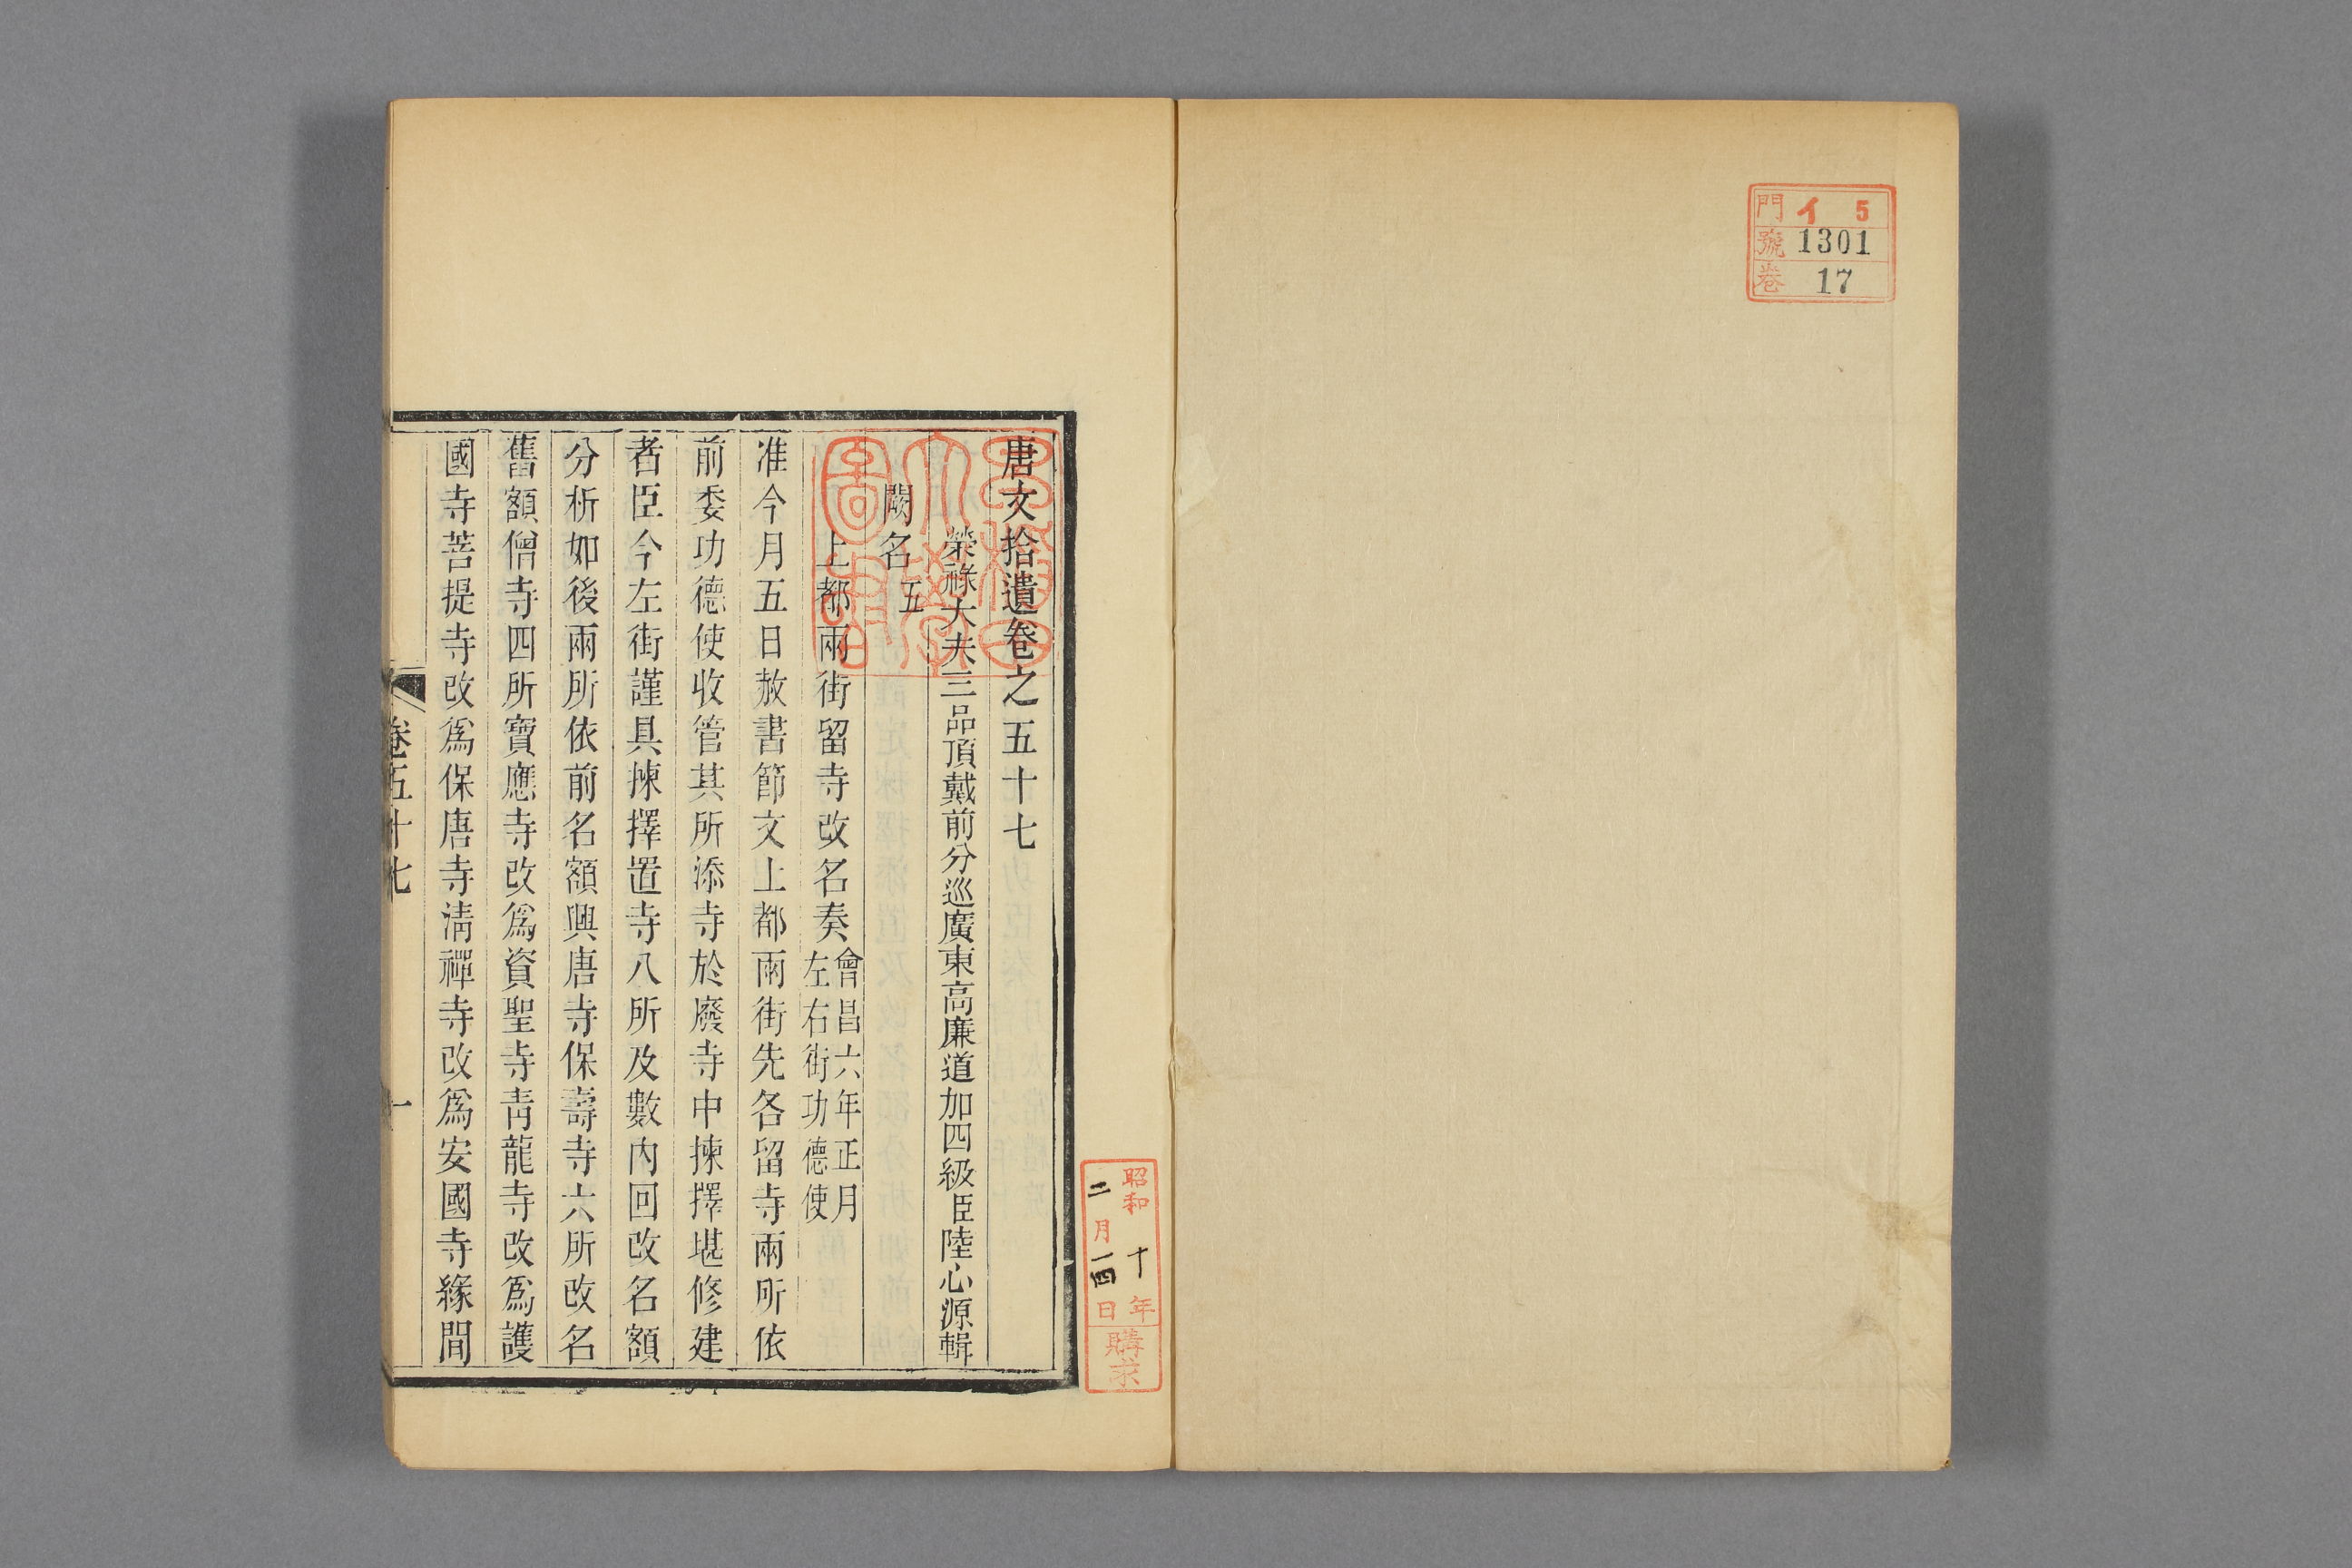 門 イ 5
號 1301
卷 17
昭和十年
二月一四日
購求
唐文拾遺卷之五十七
榮祿大夫三品頂戴前分巡廣東高廉道加四級臣陸心源輯
闕名五
上都兩街留寺改名奏會昌六年正月左右街功德使
准今月五日赦書節文上都兩街先各留寺兩所依
前委功德使收管其所添寺於廢寺中揀擇堪修建
者臣今左街謹具揀擇置寺八所及數內回改名額
分析如後兩所依前名額興唐寺保壽寺六所改名
舊額僧寺四所寶應寺改爲資聖寺靑龍寺改爲護
國寺菩提寺改爲保唐寺淸禪寺改爲安國寺緣間
卷五十七
一